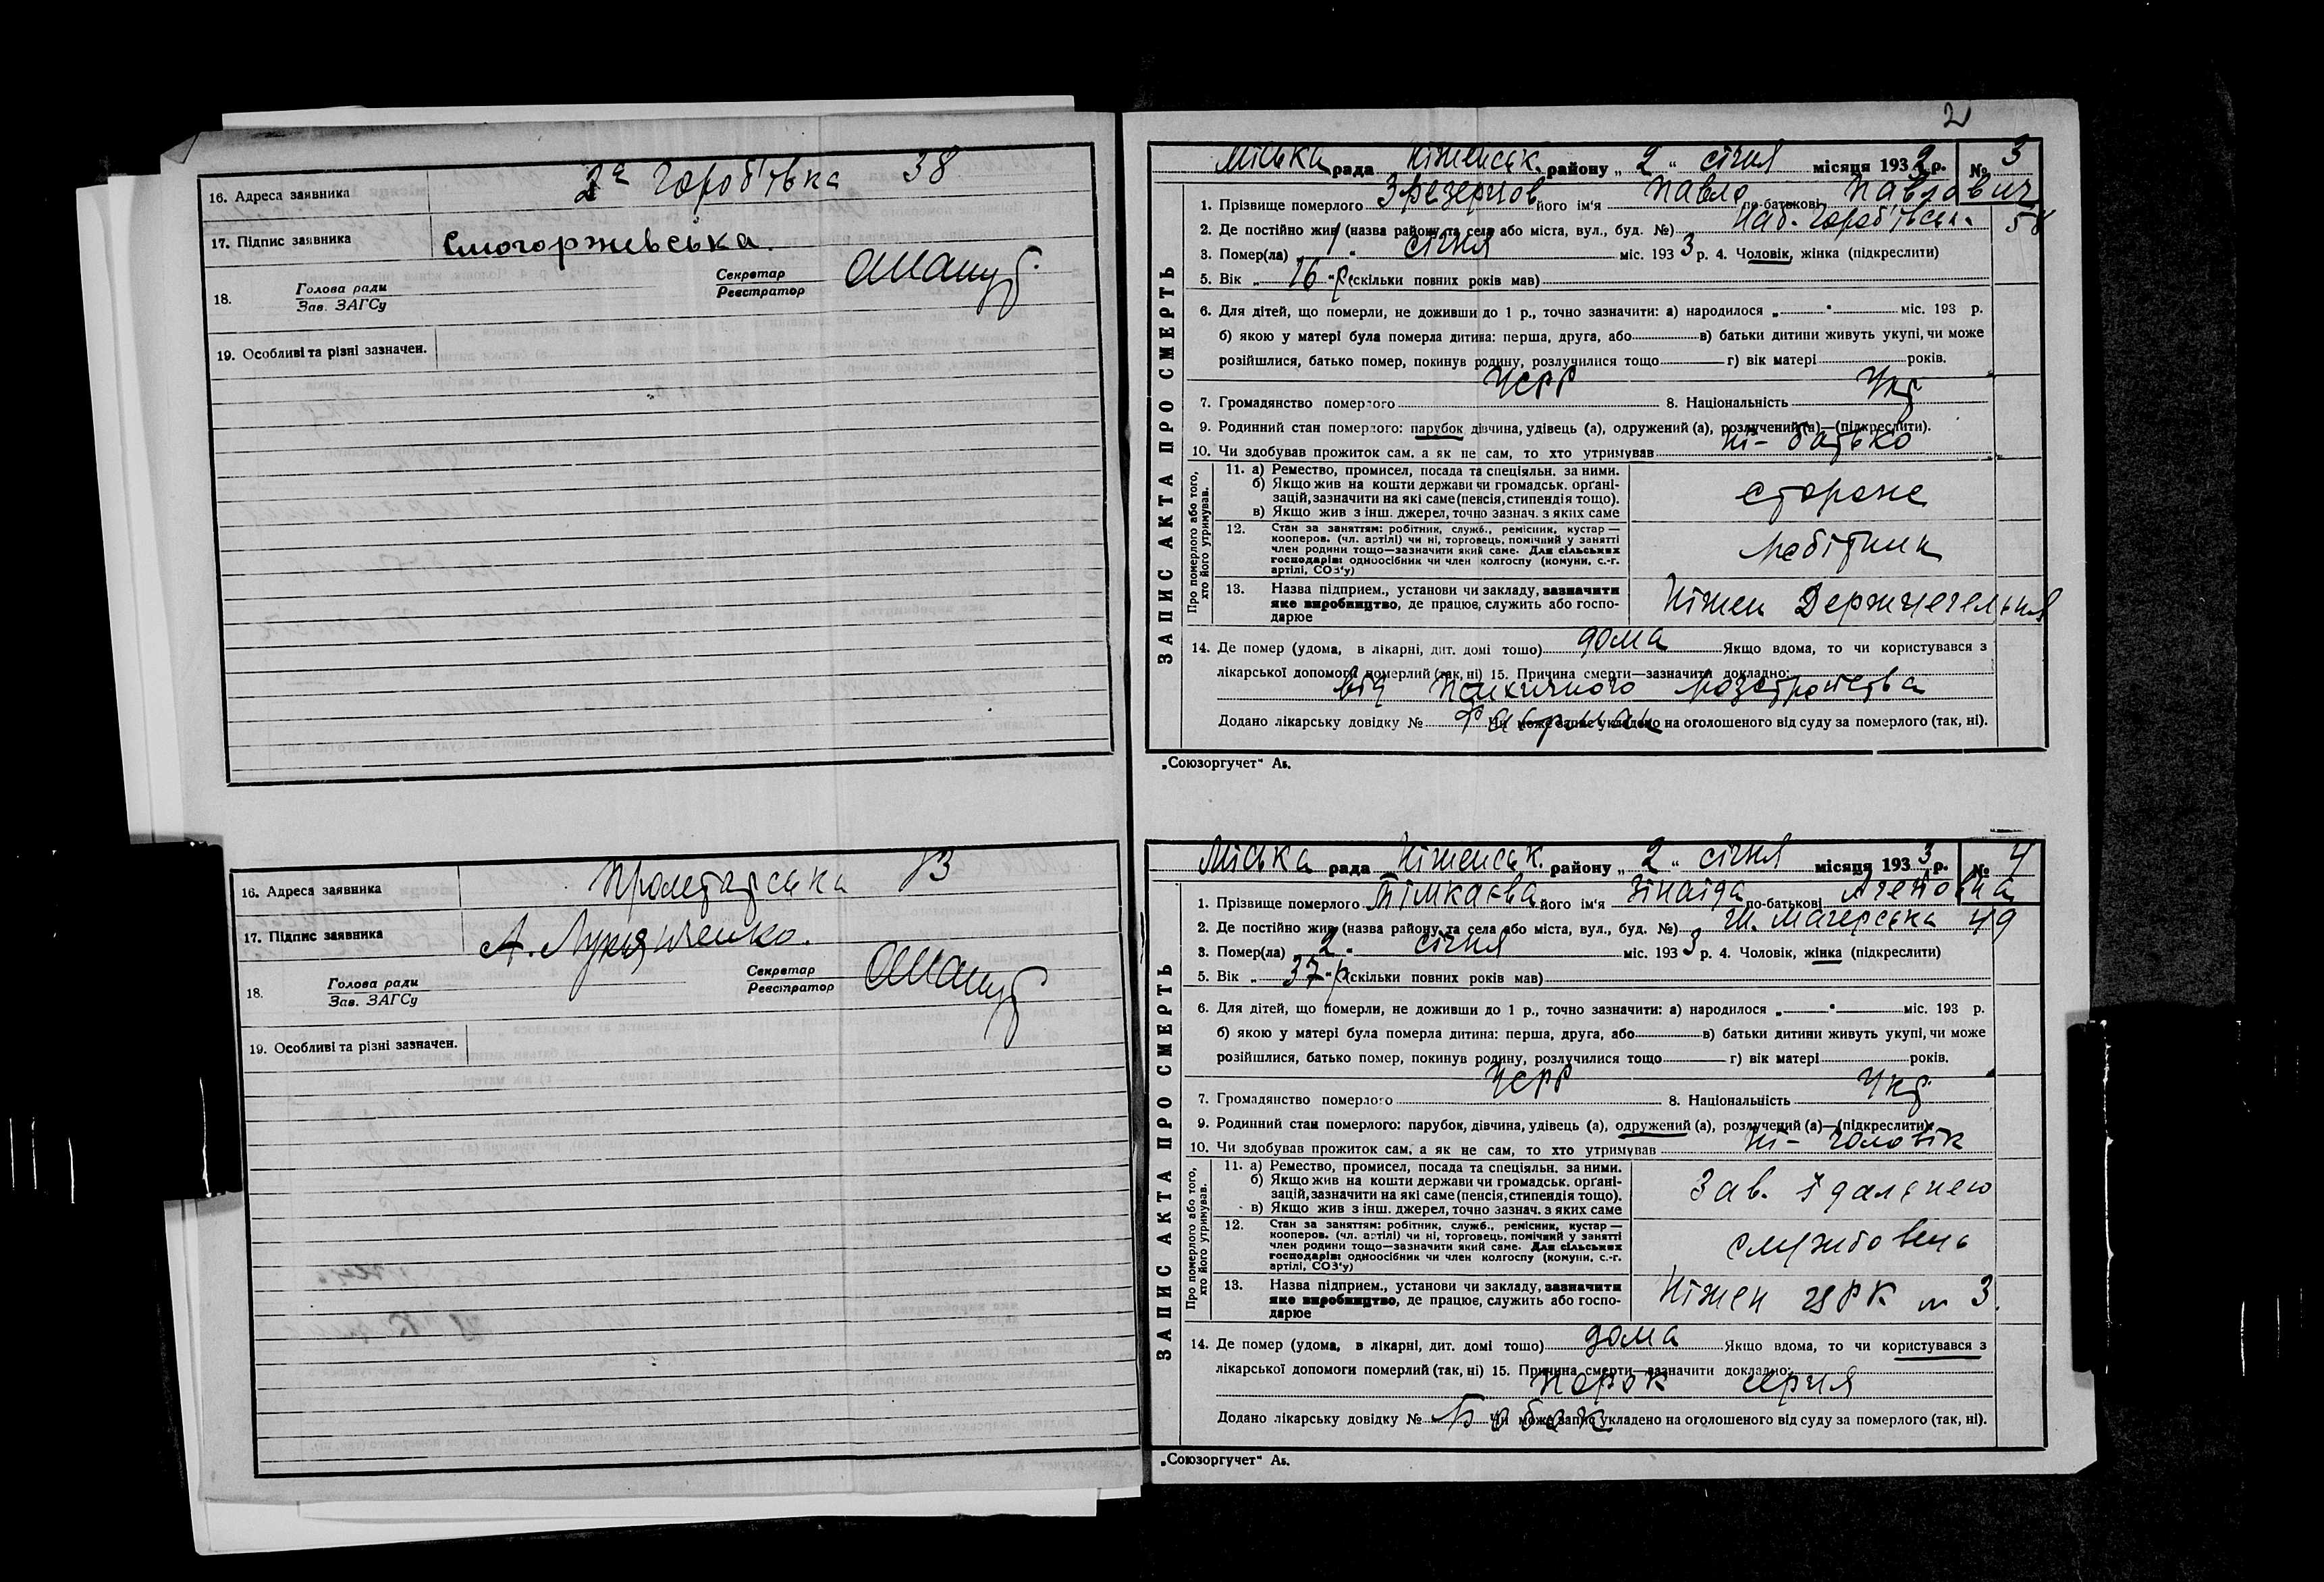 16. Адреса заявника 2а Гороб'ївка 38
17. Підпис заявника Смогоржевська.
18. Голова ради
Зав. ЗАГСу
Секретар
Реєстратор
19. Особливі та різні зазначен.
16. Адреса заявника Пролетарська 13
17. Підпис заявника А. Лук'янченко.
18. Голова ради
Зав. ЗАГСу
Секретар
Реєстратор
19. Особливі та різні зазначен.
2
ЗАПИС АКТА ПРО СМЕРТЬ
Міська рада Ніженськ. району „ 2 " січня місяця 193 р. № 3
1. Прізвище померлого його ім'я Павло по-батькові Павлович
2. Де постійно жив (назва району та села або міста, вул., буд. №) Наб.
3. Помер(ла) „ 1 " січня міс. 193 3 р. 4. Чоловік, жінка (підкреслити)
5. Вік „ 16 " р (скільки повних років мав)
6. Для дітей, що померли, не доживши до 1 р., точно зазначити: а) народилося „ " міс. 193 р.
б) якою у матері була померла дитина: перша, друга, або в) батьки дитини живуть укупі, чи може
розійшлися, батько помер, покинув родину, розлучилися тощо г) вік матері років.
7. Громадянство померлого УСРР 8. Національність Укр
9. Родинний стан померлого: парубок, дівчина, удівець (а), одружений (а), розлучений (а)—(підкреслити).
10. Чи здобував прожиток сам, а як не сам, то хто утримував ні - батько
Про померлого або того, хто його утримував.
11. а) Ремество, промисел, посада та спеціяльн. за ними.
б) Якщо жив на кошти держави чи громадськ. органі-
зацій, зазначити на які саме (пенсія, стипендія тощо).
в) Якщо жив з інш. джерел, точно зазнач. з яких саме
сторож
12. Стан за заняттям: робітник, служб., ремісник, кустар —
кооперов. (чл. артілі) чи ні, торговець, помічний у занятті
член родини тощо—зазначити який саме. Для сільських
господарів: одноосібник чи член колгоспу (комуни, с.-г.
артілі, СОЗ'у)
робітник
13. Назва підприєм., установи чи закладу, зазначити
яке виробництво, де працює, служить або госпо-
дарює
Ніжен
14. Де помер (удома, в лікарні, дит. домі тощо) дома Якщо вдома, то чи користувався з
лікарської допомоги померлий (так, ні) 15. Причина смерти—зазначити докладно:
від психичного розстройства
Додано лікарську довідку № Чи може запис укладено на оголошеного від суду за померлого (так, ні).
„Союзоргучет" Ав.
ЗАПИС АКТА ПРО СМЕРТЬ
Міська рада Ніженськ. району „ 2 " січня місяця 193 3 р. № 4
1. Прізвище померлого його ім'я Зінаїда по-батькові
2. Де постійно жив (назва району та села або міста, вул., буд. №) Ш. Магерська 49
3. Помер(ла) „ 2 " січня міс. 193 3 р. 4. Чоловік, жінка (підкреслити)
5. Вік „ 37 " р (скільки повних років мав)
6. Для дітей, що померли, не доживши до 1 р., точно зазначити: а) народилося „ " міс. 193 р.
б) якою у матері була померла дитина: перша, друга, або в) батьки дитини живуть укупі, чи може
розійшлися, батько помер, покинув родину, розлучилися тощо г) вік матері років.
7. Громадянство померлого УСРР 8. Національність Укр
9. Родинний стан померлого: парубок, дівчина, удівець (а), одружений (а), розлучений (а)—(підкреслити).
10. Чи здобував прожиток сам, а як не сам, то хто утримував ні - чоловік
Про померлого або того, хто його утримував.
11. а) Ремество, промисел, посада та спеціяльн. за ними.
б) Якщо жив на кошти держави чи громадськ. органі-
зацій, зазначити на які саме (пенсія, стипендія тощо).
в) Якщо жив з інш. джерел, точно зазнач. з яких саме
Зав. їдальнею
12. Стан за заняттям: робітник, служб., ремісник, кустар —
кооперов. (чл. артілі) чи ні, торговець, помічний у занятті
член родини тощо—зазначити який саме. Для сільських
господарів: одноосібник чи член колгоспу (комуни, с.-г.
артілі, СОЗ'у)
службовець
13. Назва підприєм., установи чи закладу, зазначити
яке виробництво, де працює, служить або госпо-
дарює
Ніжен ЦРК № 3.
14. Де помер (удома, в лікарні, дит. домі тощо) дома Якщо вдома, то чи користувався з
лікарської допомоги померлий (так, ні) 15. Причина смерти—зазначити докладно:
порок серця
Додано лікарську довідку № Чи може запис укладено на оголошеного від суду за померлого (так, ні).
„Союзоргучет" Ав.